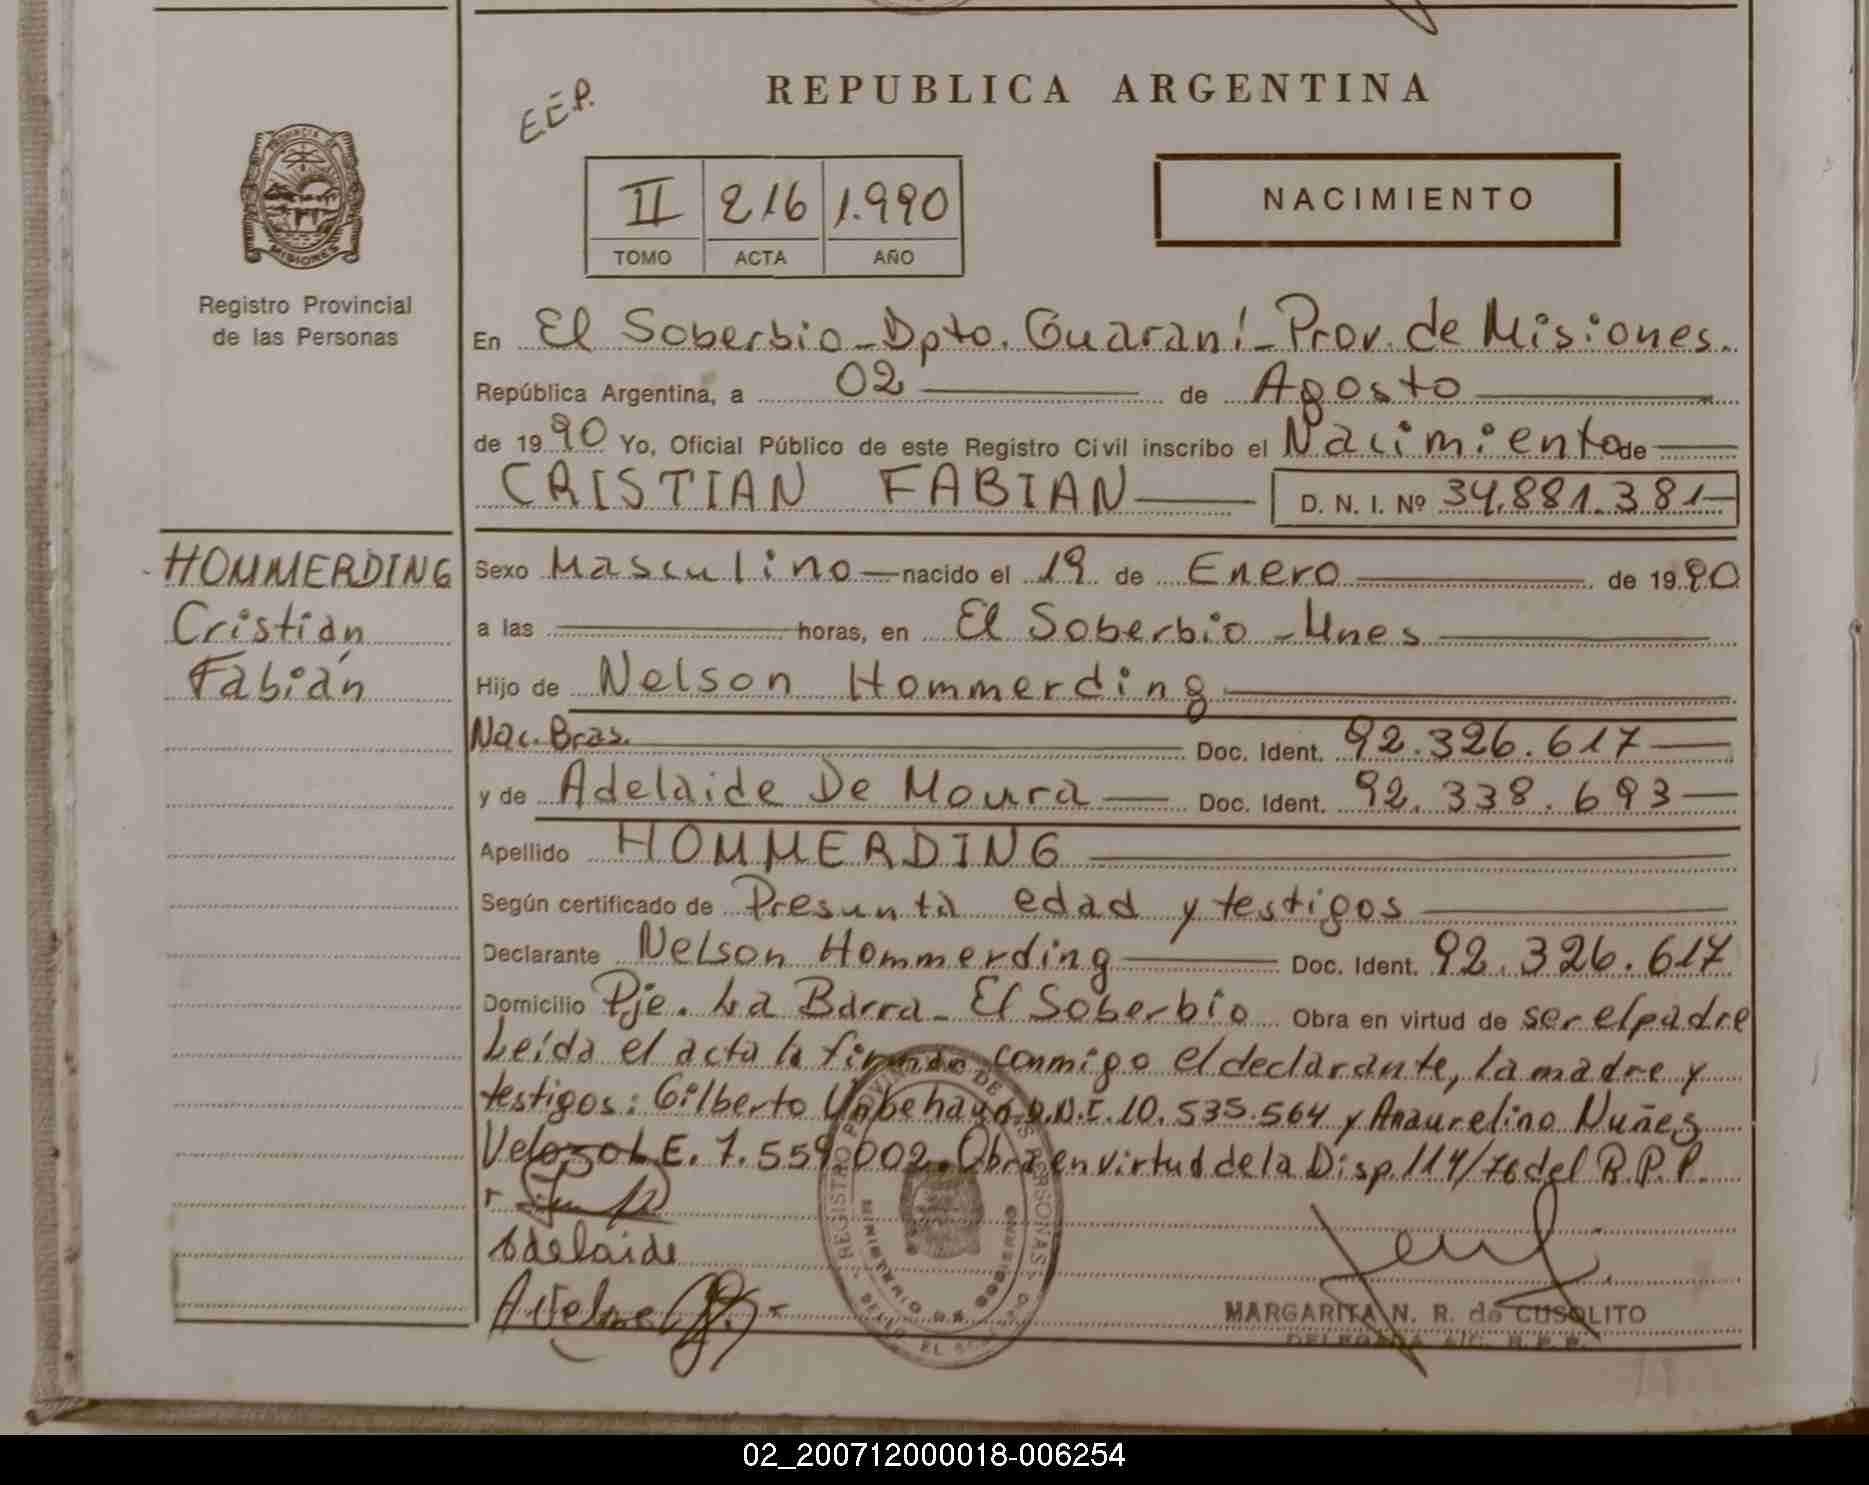 E.E.P.
REPUBLICA ARGENTINA
II 216 1.990
TOMO ACTA AÑO
NACIMIENTO
MISIONES
Registro Provincial
de las Personas
En El Soberbio - Dpto. Guaraní - Prov. de Misiones.
República Argentina, a 02 de Agosto
de 1990 Yo, Oficial Público de este Registro Civil inscribo el Nacimiento de
CRISTIAN FABIAN D. N. I. Nº 34.881.381
HOMMERDING
Cristián
Fabián
Sexo Masculino nacido el 19 de Enero de 1990
a las horas, en El Soberbio - Mnes
Hijo de Nelson Hommerding
Nac. Bras. Doc. Ident. 92.326.617
y de Adelaide De Moura Doc. Ident. 92.338.693
Apellido HOMMERDING
Según certificado de Presunta edad y testigos
Declarante Nelson Hommerding Doc. Ident. 92.326.617
Domicilio Pje. La Barra - El Soberbio Obra en virtud de ser el padre
Leída el acta la firman conmigo el declarante, la madre y
testigos: Gilberto Unbehaun D.N.I. 10.535.564 y Anaurelino Nuñes
Velozo L.E. 7.559.002. Obra en virtud de la Disp. 114/76 del R.P.P.
Adelaide
REGISTRO PROVINCIAL DE LAS PERSONAS
MINISTERIO DE GOBIERNO
MARGARITA N. R. de CUSOLITO
DELEGADA A/C. R.P.P.
02_200712000018-006254